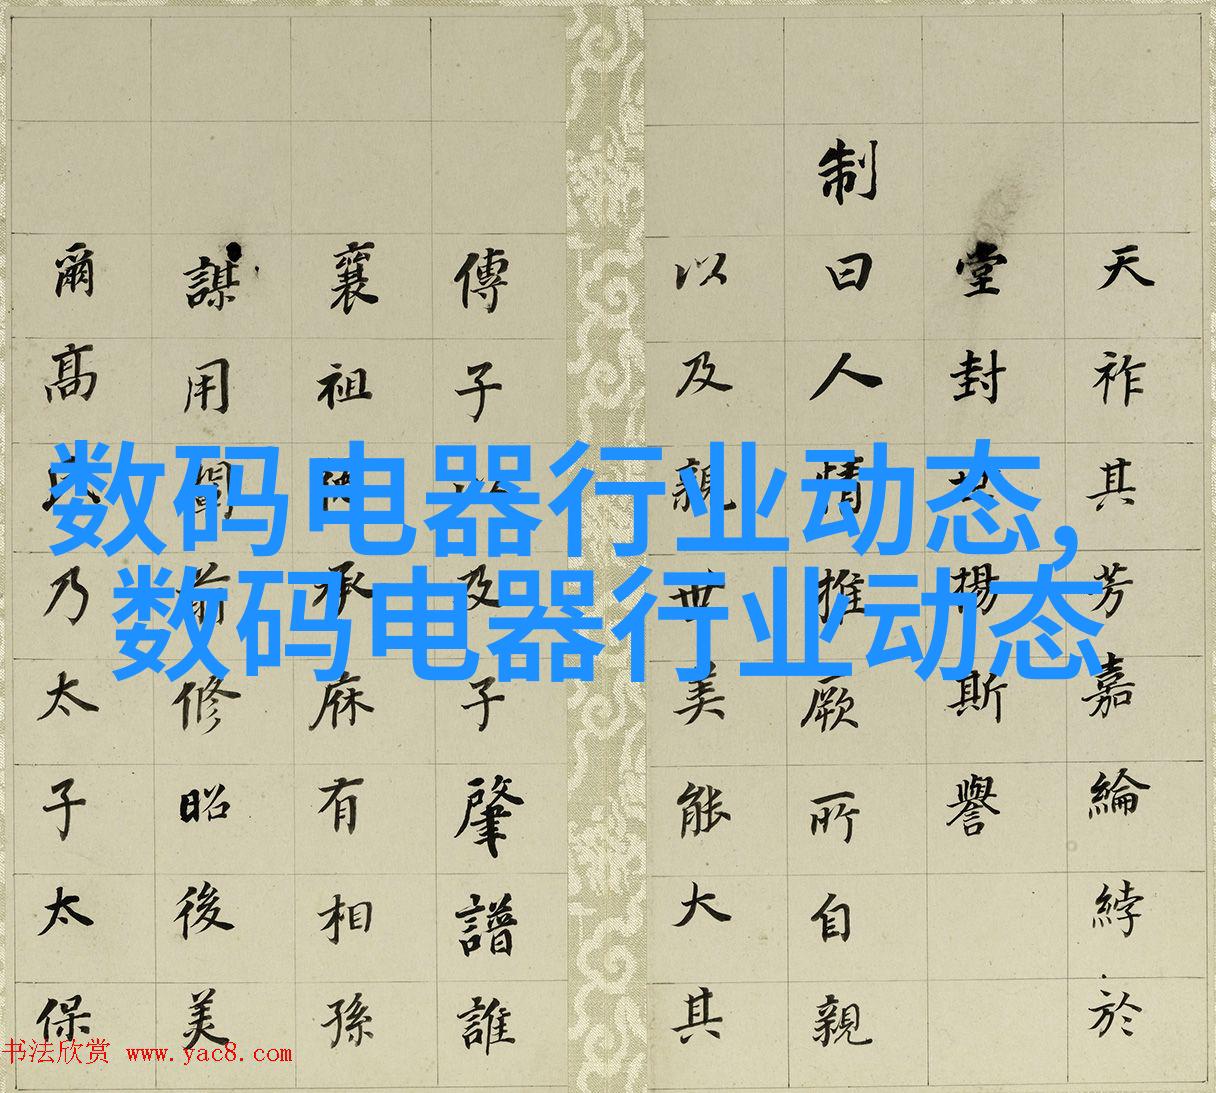 天祚其芳嘉綸綍於
堂封揚斯譽
制
曰人情推厥所自親
以及親世美能大其
傳子以及子肇譜誰
襄祖承庥有相孫
謀用闡前修昭後美
爾高氏乃太子太保
数码电器行业动态,
数码电器行业动态
书法欣赏 www.yac8.com